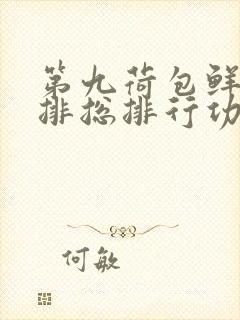 第九荷包鲜
排总排行功
何敏